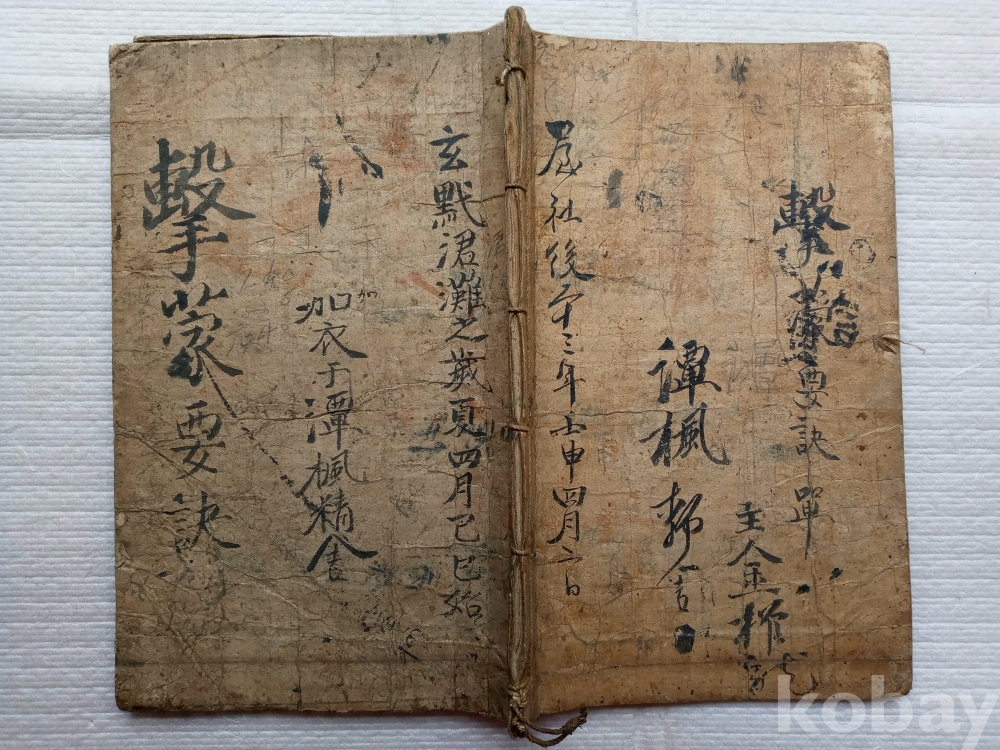 擊蒙要訣 單
主金
譚楓
屋社後卄三年壬申四月二日
玄黓涒灘之歲夏四月己巳始
加衣于潭楓精舍
加
擊蒙要訣
kobay